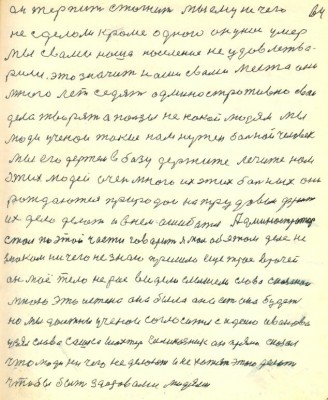 он терпит стогнит мы ему ничего
не сделали кроме одного он умер
мы с вами наша поселение не удовлетва-
рили. это значит нами с вами места
много лет седят административно свои
дела творят а пользы не какой людям мы
люди ученои такие нам нужен больной человек
мы его держим в базу держите лечите нам
этих людей очен много их этих больных они
рождаются природои на трудовом
их дело делать и в нем ошибатся Администратор
стал по этой части говорит я мол об этом деле не
знаком ничего не знаю пришло еще трое врачей
он моё тело не раз видели слышели слова
много это истено она была она есть она будет
но мы должны ученои согласится с идееи иванова
узял слова Сашко шахтер он прямо сказал
что люди ни чего не делают и не хотят этого делать
чтобы быт здоровоми людьми